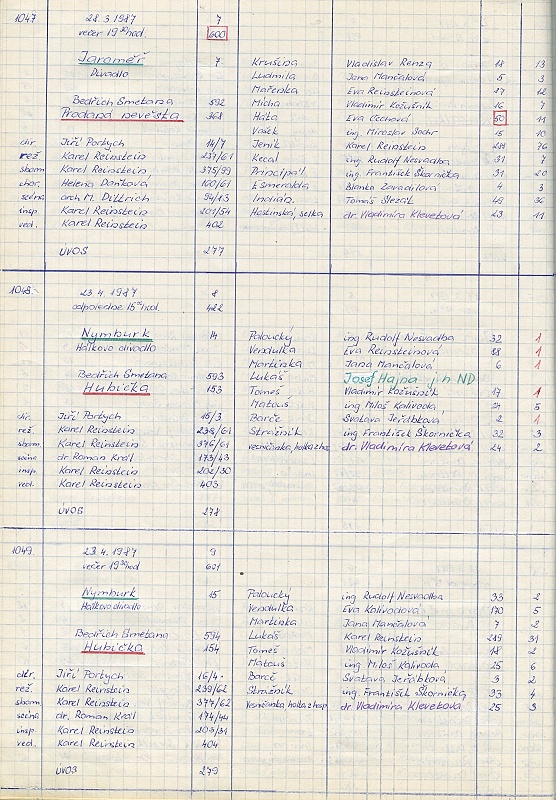 1047 28.3.1987 7
večer 19 30 hod. 600
Jaroměř 7 Krušina Vladislav Renza 18 13
Divadlo Ludmila Jana Mančalová 5 3
Mařenka Eva Reinsteinová 17 12
Bedřich Smetana 592 Mícha Vladimír Kožušník 16 7
Prodaná nevěsta 368 Háta Eva Čechová 50 11
Vašek ing. Miroslav Sochr 15 10
dir Jiří Portych 14/7 Jeník Karel Reinstein 76
rež Karel Reinstein 237/61 Kecal ing Rudolf Nesvadba 31 7
sbom Karel Reinstein 375/99 Principál ing. František Škornička 31 20
chor. Helena Daňková 100/61 Esmeralda Blanka Zavadilová 4 3
scéna arch M. Dittrich 94/13 Indián Tomáš Slezák 49 36
insp Karel Reinstein 201/54 Hostinská, selka dr Vladimíra Klevetová 23 11
ved. Karel Reinstein 402
ÚVOS 277
1048. 23.4.1987 8
odpoledne 15 00 hod. 422
Nymburk 14 Paloucký ing Rudolf Nesvadba 32 1
Hálkovo divadlo Vendulka Eva Reinsteinová 18 1
Martinka Jana Mančalová 6 1
Bedřich Smetana 593 Lukáš Josef Hajna j. h ND
Hubička 153 Tomeš Vladimír Kožušník 17 1
Matouš ing Miloš Kalivoda 24 5
dir. Jiří Portych 15/3 Barče Svatava Jeřábková 2 1
rež. Karel Reinstein 238/61 Strážník ing František Škornička 32 3
sbom. Karel Reinstein 376/61 vesničanka, holka z hsp. dr. Vladimíra Klevetová 24 2
scéna dr Roman Král 173/43
insp. Karel Reinstein 202/30
ved. Karel Reinstein 403
ÚVOS 278
1049. 23.4.1987 9
večer 19 30 hod 601
Nymburk 15 Paloucký ing Rudolf Nesvadba 33 2
Hálkovo divadlo Vendulka Eva Kalivodová 170 5
Martinka Jana Mančalová 7 2
Bedřich Smetana 594 Lukáš Karel Reinstein 219 31
Hubička 154 Tomeš Vladimír Kožušník 18 2
Matouš ing Miloš Kalivoda 25 6
dir. Jiří Portych 16/4 Barče Svatava Jeřábková 3 2
rež. Karel Reinstein 239/62 Strážník ing František Škornička 33 4
sbom Karel Reinstein 377/62 Vesničanka, holka z hsp dr Vladimíra Klevetová 25 3
scéna dr. Roman Král 174/44
insp Karel Reinstein 203/31
ved. Karel Reinstein 404
ÚVOS 279